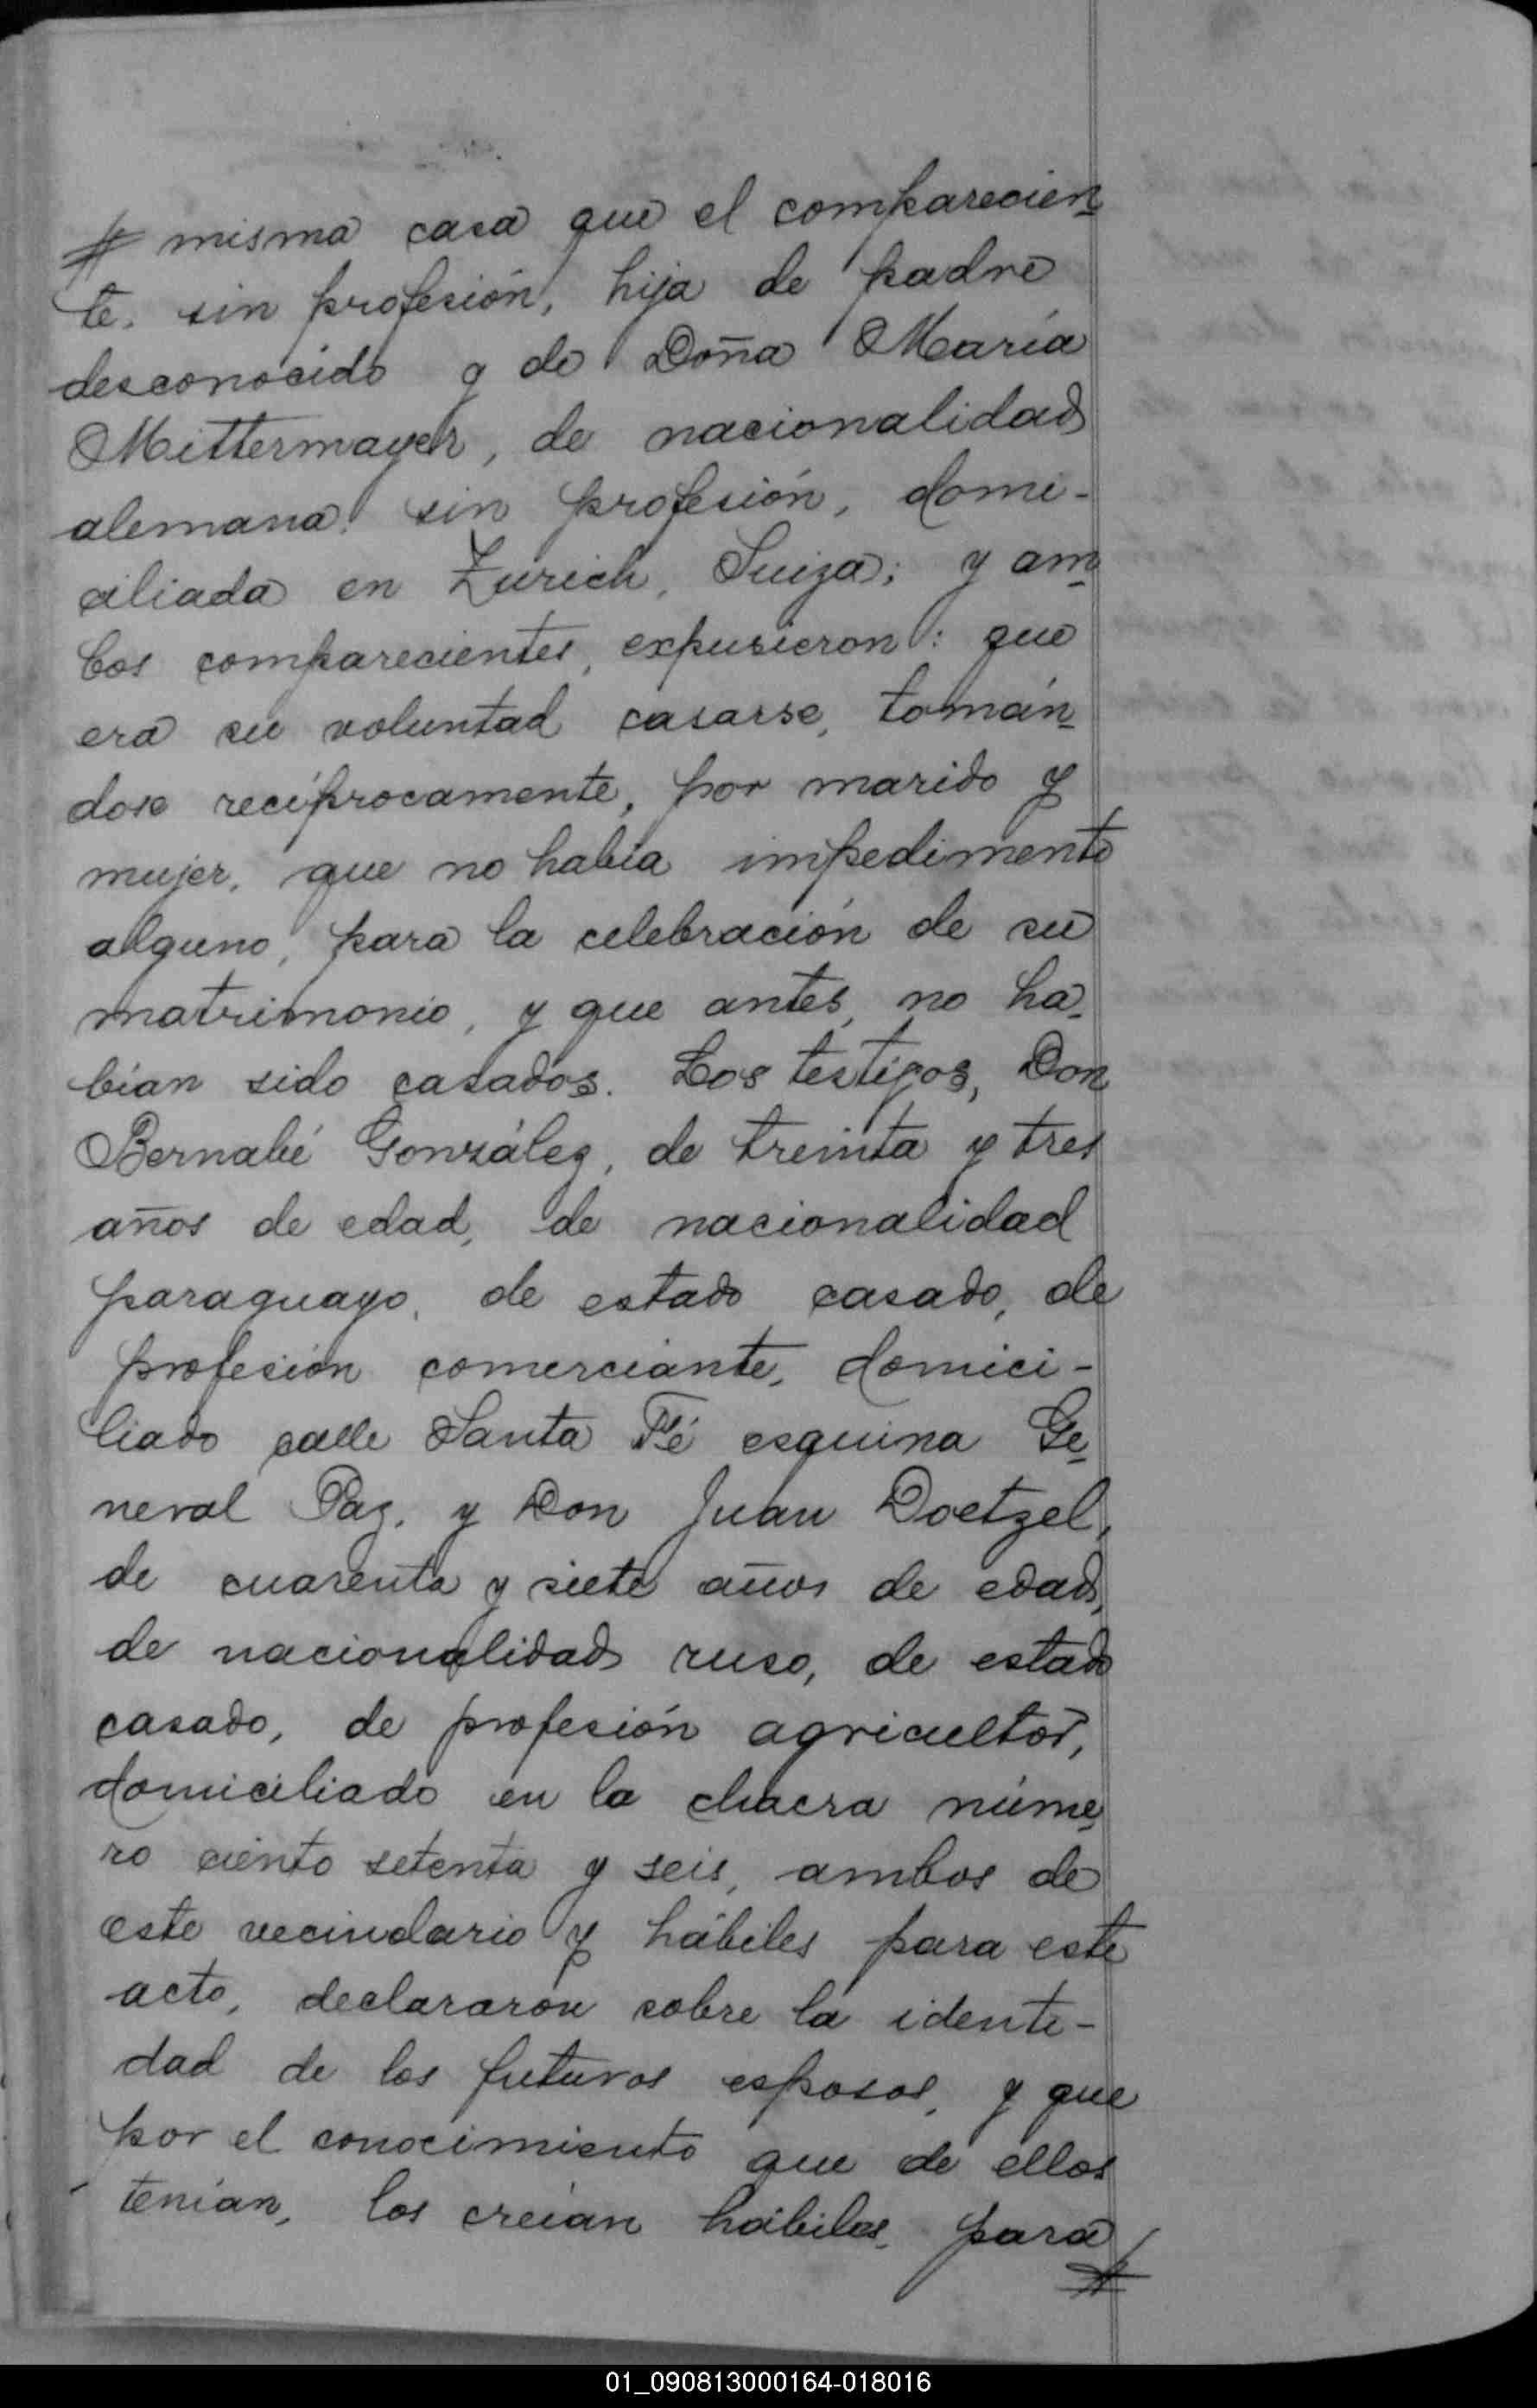 # misma casa que el comparecien
te, sin profesión, hija de padre
desconocido y de Doña María
Mittermayer, de nacionalidad
alemana, sin profesión, domi-
ciliada en Zurich, Suiza; y am
bos comparecientes, expusieron: que
era su voluntad casarse, tomán
dose recíprocamente, por marido y
mujer, que no había impedimento
alguno, para la celebración de su
matrimonio, y que antes, no ha
bían sido casados. Los testigos, Don
Bernabé González, de treinta y tres
años de edad, de nacionalidad
paraguayo, de estado casado, de
profesión comerciante, domici-
liado calle Santa Fé esquina Ge
neral Paz, y Don Juan Doetzel,
de cuarenta y siete años de edad,
de nacionalidad ruso, de estado
casado, de profesión agricultor,
domiciliado en la chacra núme
ro ciento setenta y seis, ambos de
este vecindario y hábiles para este
acto, declararon sobre la identi-
dad de los futuros esposos, y que
por el conocimiento que de ellos
tenían, los creían hábiles, para
#
01_090813000164-018016